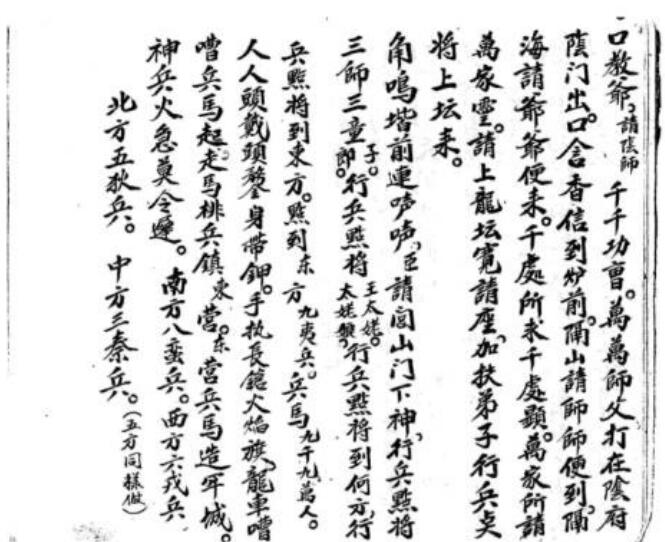 口教爺，請陰師 千千功曹。萬萬師父打在陰府
陰门出。口含香信到炉前。隔山請師師便到，隔
海請爺爺便来。千處所求千處顯。萬家所請
萬家灵。請上龍坛寬請座，加扶弟子行兵点
将上坛来。
角鳴堦前連声声，臣請闾山门下神，行兵點将
三師三童子。郎。行兵點将王太姥。太姥。行兵點将到何方，行
兵點将到東方。點到东方九夷兵。兵馬九千九萬人。
人人頭戴頭鍪身帶鉀。手执長鎗火焰旗，龍車嘈
嘈兵馬起，走馬排兵鎮東营。东营兵馬造牢城。
神兵火急莫令遲。南方八蠻兵。西方六戎兵
北方五狄兵。中方三秦兵。(五方同樣做)